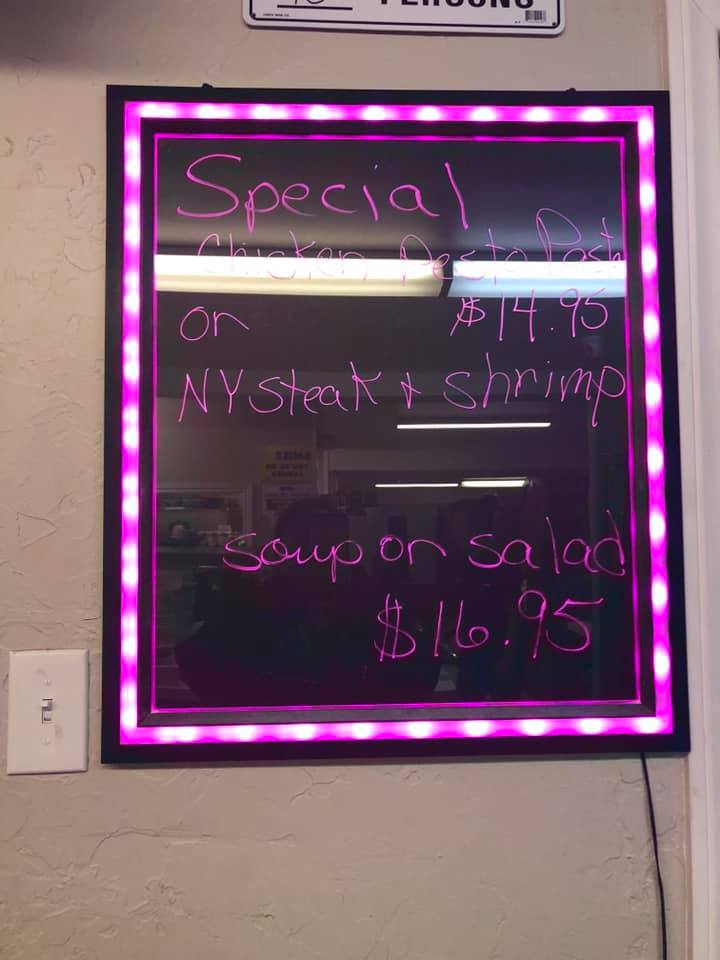 PERSONS
Special
Chicken Pesto Pasta
or $14.95
NY Steak & Shrimp
soup or salad
$16.95